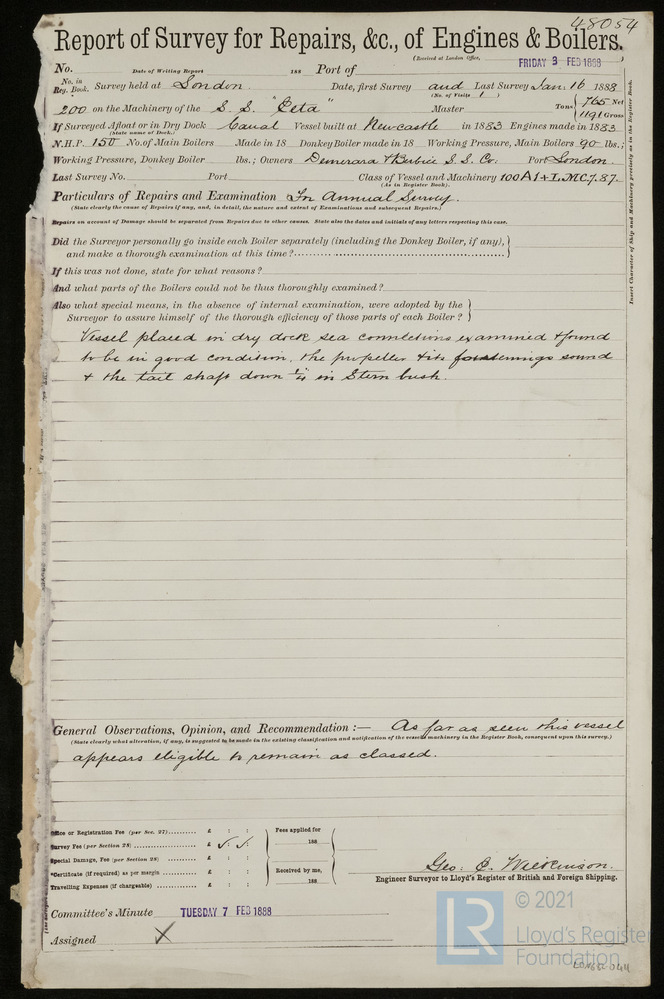 48054
Report of Survey for Repairs, &c., of Engines & Boilers.
(Received at London Office, FRIDAY 3 FEB 1888 )
No. Date of Writing Report 188 Port of
No. in Reg. Book. Survey held at London Date, first Survey and Last Survey Jan. 16 1888
(No. of Visits 1 )
200 on the Machinery of the S. S. "Ceta" Master Tons { 765 Net 1191 Gross
If Surveyed Afloat or in Dry Dock Canal Vessel built at Newcastle in 1883 Engines made in 1883
(State name of Dock.)
N.H.P. 150 No. of Main Boilers Made in 18 Donkey Boiler made in 18 Working Pressure, Main Boilers 90 lbs.;
Working Pressure, Donkey Boiler lbs.; Owners Demerara & Berbice S. S. Co. Port London.
Last Survey No. Port Class of Vessel and Machinery 100A1 + L.MC.7.87.
(As in Register Book).
Particulars of Repairs and Examination For Annual Survey.
(State clearly the cause of Repairs if any, and, in detail, the nature and extent of Examinations and subsequent Repairs.)
Repairs on account of Damage should be separated from Repairs due to other causes. State also the dates and initials of any letters respecting this case.
Did the Surveyor personally go inside each Boiler separately (including the Donkey Boiler, if any),
and make a thorough examination at this time?
If this was not done, state for what reasons?
And what parts of the Boilers could not be thus thoroughly examined?
Also what special means, in the absence of internal examination, were adopted by the
Surveyor to assure himself of the thorough efficiency of those parts of each Boiler?
Vessel placed in dry dock sea connections examined & found
to be in good condition, the propeller & its fastenings sound
& the tail shaft down 1/4 in Stern bush.
General Observations, Opinion, and Recommendation :— As far as seen this vessel
(State clearly what alteration, if any, is suggested to be made in the existing classification and notification of the vessel's machinery in the Register Book, consequent upon this survey.)
appears eligible to remain as classed.
Office or Registration Fee (per Sec. 27) £ : :
Survey Fee (per Section 28) £ : :
Special Damage, Fee (per Section 28) £ : :
*Certificate (if required) as per margin £ : :
Travelling Expenses (if chargeable) £ : :
Fees applied for
188
Received by me,
188
Geo. C. Wilkinson.
Engineer Surveyor to Lloyd's Register of British and Foreign Shipping.
Committee's Minute TUESDAY 7 FEB 1888
Assigned X
Insert Character of Ship and Machinery precisely as in the Register Book.
LR
© 2021
Lloyd's Register
Foundation